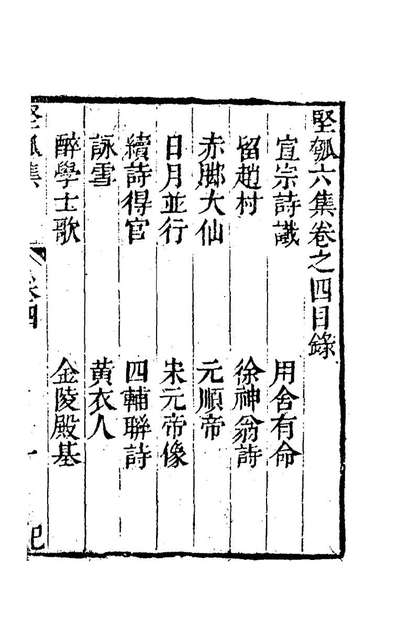 堅瓠六集卷之四目錄
宣宗詩讖 用舍有命
留趙村 徐神翁詩
赤脚大仙 元順帝
日月並行 宋元帝像
續詩得官 四輔聯詩
詠雪 黃衣人
醉學士歌 金陵殿基
堅瓠集 卷四 一